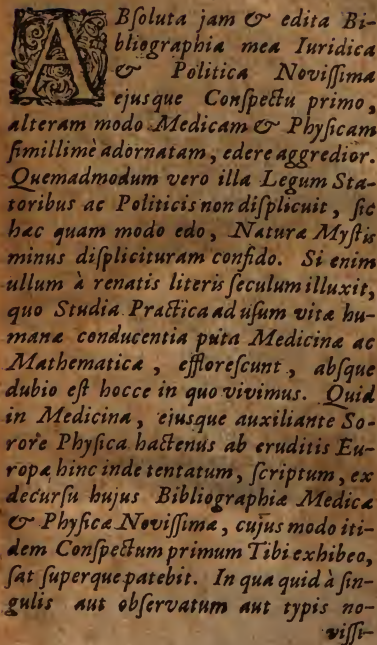 ABſoluta jam & edita Bi-
bliographia mea Iuridica
& Politica Noviſſima
ejusque Conſpectu primo,
alteram modo Medicam & Phyſicam
ſimillimè adornatam, edere aggredior.
Quemadmodum vero illa Legum Sta-
toribus ac Politicis non diſplicuit, ſic
hac quam modo edo, Naturæ Myſtis
minus diſplicituram confido. Si enim
ullum à renatis literis ſeculum illuxit,
quo Studia Practica ad uſum vitæ hu-
manæ conducentia puta Medicinæ ac
Mathematicæ, effloreſcunt, absque
dubio eſt hocce in quo vivimus. Quid
in Medicina, ejusque auxiliante So-
rore Phyſica hactenus ab eruditis Eu-
ropæ hinc inde tentatum, ſcriptum, ex
decurſu hujus Bibliographiæ Medicæ
& Phyſicæ Noviſſimæ, cujus modo iti-
dem Conſpectum primum Tibi exhibeo,
ſat ſuperque patebit. In qua quid à ſin-
gulis aut obſervatum aut typis no-
viſſi-